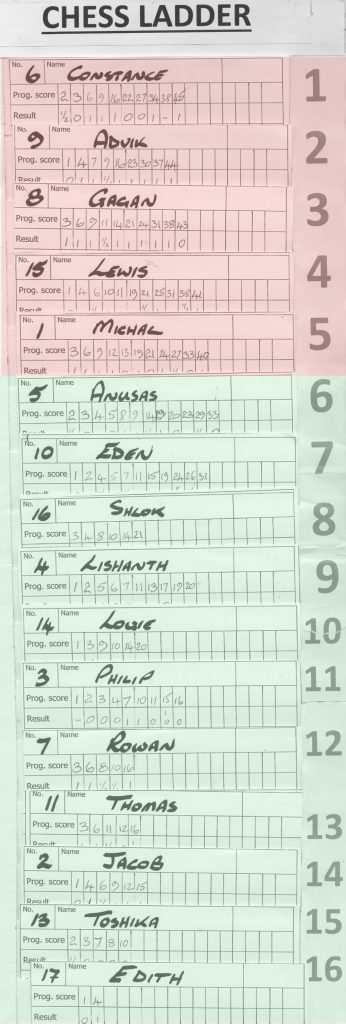 CHESS LADDER
No. 6 Name CONSTANCE 1
Prog. score 2 3 6 9 16 22 27 34 38
Result ½ 0 1 1 1 0 0 1 - 1
No. 9 Name ADVIK 2
Prog. score 1 4 7 9 16 23 30 37 44
No. 8 Name GAGAN 3
Prog. score 3 6 9 11 14 21 24 31 38 43
Result 1 1 1 ½ 1 1 1 1 1 0
No. 15 Name LEWIS 4
Prog. score 1 4 6 10 11 19 21 25 31 38
No. 1 Name MICHAL 5
Prog. score 3 6 9 12 13 19 21 24 27 33 40
No. 5 Name ANUSAS 6
Prog. score 2 3 4 5 8 9 20 23 29 33
No. 10 Name EDEN 7
Prog. score 1 2 4 5 7 11 15 19 24 26 31
No. 16 Name SHLOK 8
Prog. score 3 4 8 10 14 21
No. 4 Name LISHANTH 9
Prog. score 1 2 5 6 7 11 13 17 19 20
No. 14 Name LOUIE 10
Prog. score 1 3 9 10 14 20
No. 3 Name PHILIP 11
Prog. score 1 2 3 4 7 10 11 15 16
Result - 0 0 0 1 1 0 0 0
No. 7 Name ROWAN 12
Prog. score 3 6 8 10 16
No. 11 Name THOMAS
Prog. score 3 6 11 12 16 13
No. 2 Name JACOB 14
Prog. score 1 4 6 9 12 15
No. 13 Name TOSHIKA 15
Prog. score 2 3 7 8 10
No. 17 Name EDITH 16
Prog. score 1 4